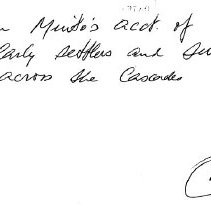 Minto's acct. of
Early settlers and
across the Cascades